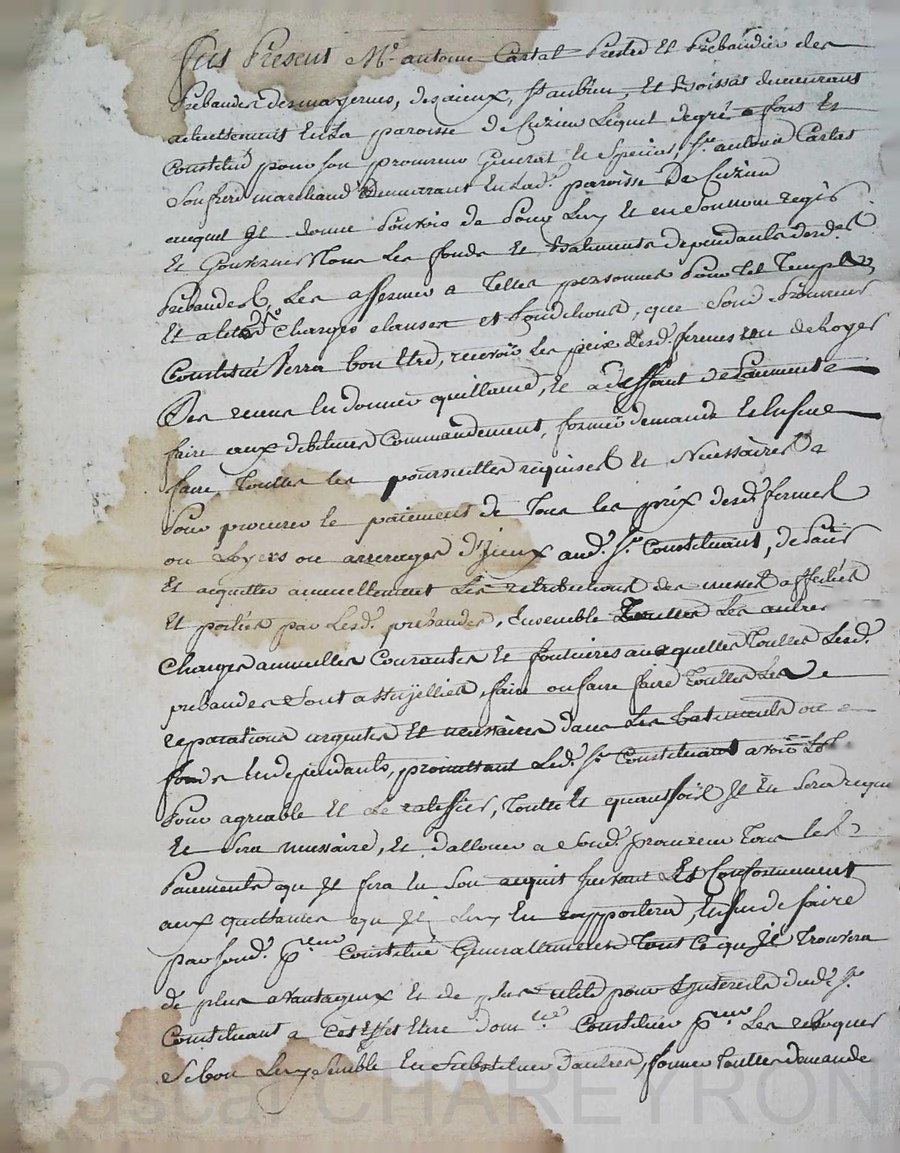 Fut Présent Mr. antoine Cartal Prestre Et Prebandier des
Prebandes desmayernes, desaieux, St aubien, Et Boissas demeurant
actuellement En la paroisse de Cuzieu Lequel degré a fait Et
Constitué pour son procureur General Et Special, Sr. antoine Cartal
Son frere marchand Demeurant En lad. paroisse De Cuzieu
auquel Il donne Pouvoir de Pour Luy Et en Son nom regir
Et Gouverner Tous Les fonds Et Batiments dependants desd.
Prebandes, Les affermer a Telles personnes Pour Tel Temps
Et a telles Charges clauses et Conditions, que Sond. Procureur
Constitué Verra bon Etre, recevoir Les prix desd. fermes ou de Loyer
Des reçus En donner quittance, Et a deffaut de Paiement
faire aux debiteurs Commandement, former demande Et Enfin
faire Touttes les poursuittes requises Et Necessaires
Pour procurer le paiement de Tous les prix desd. fermes
ou Loyers ou arrerages d'Iceux aud. Sr. Constituant, de Paier
Et acquitter annuellement Les retributions des messes affectées
Et portées par Lesd. prebandes, Ensemble Touttes Les autres
Charges annuelles Courantes Et foncieres auxquelles Touttes Lesd.
prebandes Sont assujetties, faire ou faire faire Touttes Les
reparations urgentes Et necessaires dans Les batiments ou
fonds En dependants, promettant Led. Sr. Constituant avoir Le
Pour agreable Et Le ratiffier, Toutte Et quantefois Il En Sera requis
Et Sera necessaire, Et d'allouer a Sond. procureur Tous les
Paiements qu Il fera En Son acquit Suivant Et Conformement
aux quittances qu Il Luy En rapportera, Enfin de faire
par Sond. Preur Constitué Generallement Tout Ce qu Il Trouvera
de plus avantageux Et de plus utile pour Lynterets dud. Sr.
Constituant a Cet Effet Elire domlle Constituer Preur Les revoquer
Si bon Luy Semble En Substituer d'autres, former Touttes demande
Pascal CHAREYRON